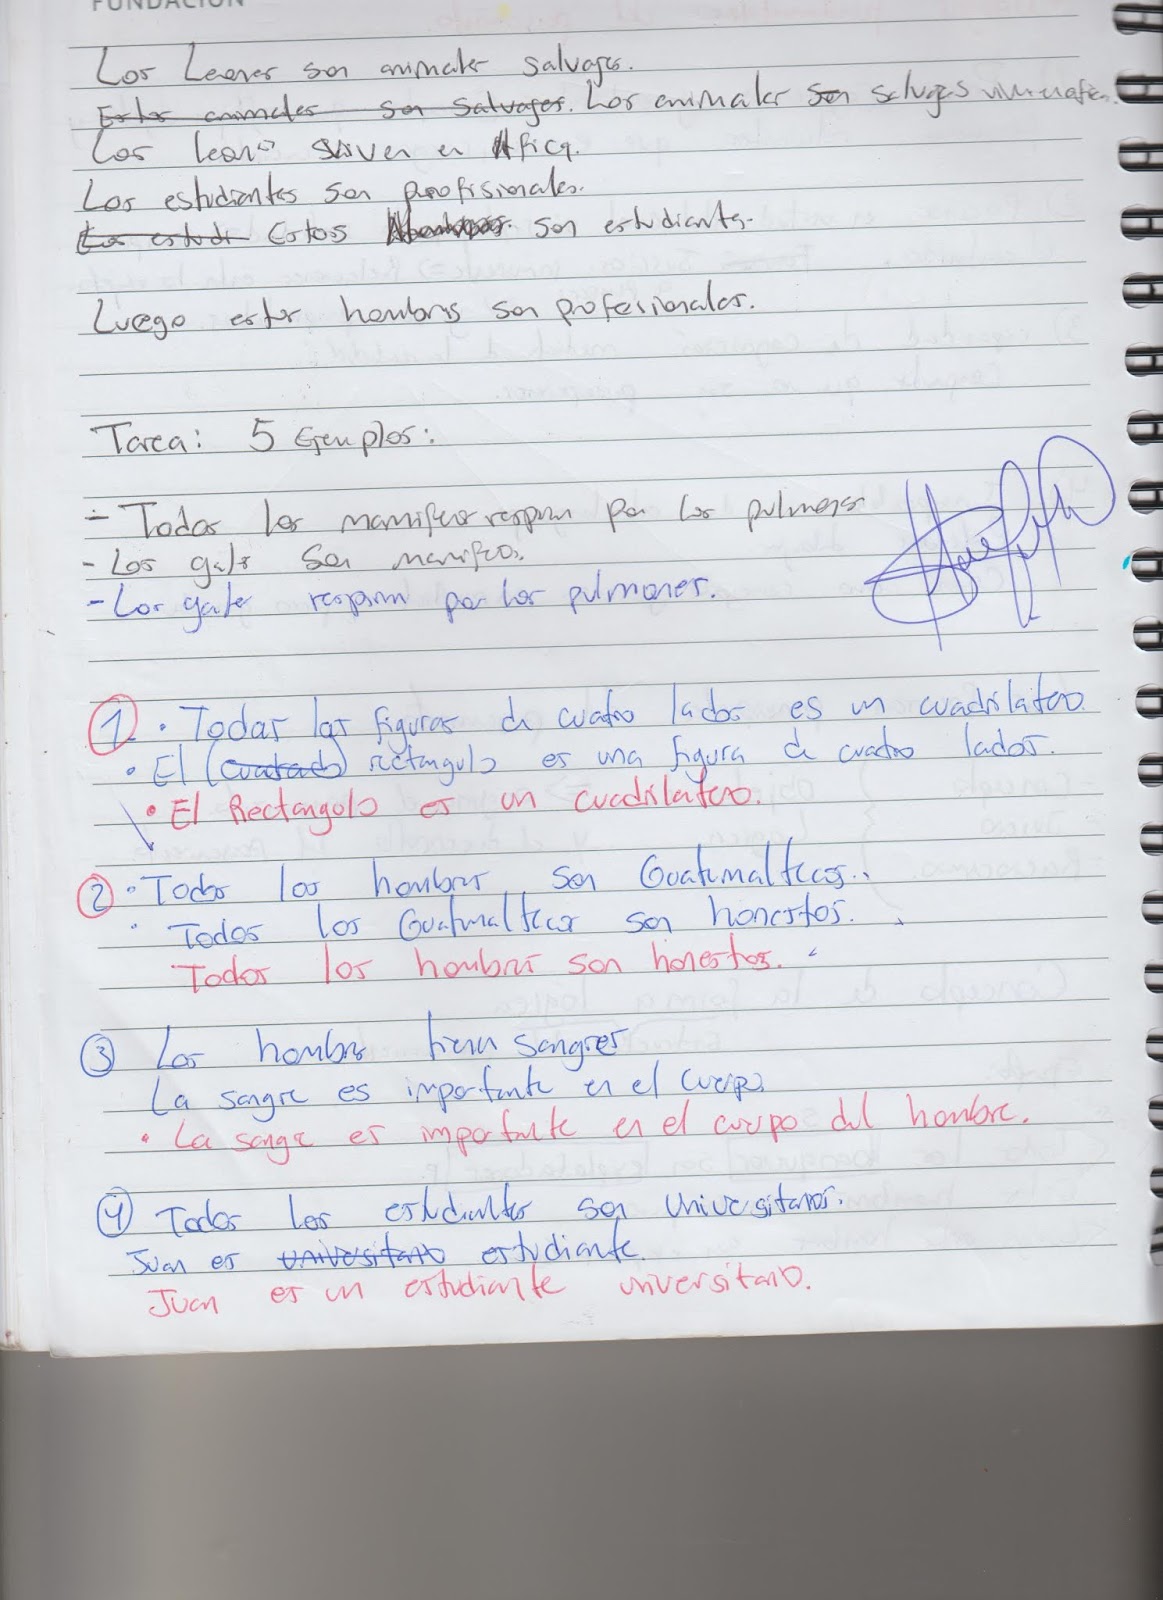 FUNDACIÓN
Los Leones son animales salvajes.
Estos animales son salvajes. Los animales son salvajes viven
Los leons viven en Africa.
Los estudiantes son profisionales.
Los estudi Estos son estudiantes.
Luego estos hombres son profesionales.
Tarea: 5 Ejemplos:
- Todos los mamifero respiran por los pulmones
- Los gato son mamifero.
- Los gatos respiran por los pulmones.
1. • Todas las figuras de cuatro lados es un cuadrilatero.
• El (cuadrado) rectangulo es una figura de cuatro lados.
• El Rectangulo es un cuadrilatero.
2 • Todos los hombres son Guatemaltecos.
• Todos los Guatemaltecos son honestos.
Todos los hombres son honestos.
3 Los hombres tienen sangres
La sangre es importante en el cuerpo.
• La sangre es importante en el cuerpo del hombre.
4 Todos los estudiantes son Universitarios.
Juan es universitario estudiante.
Juan es un estudiante universitario.